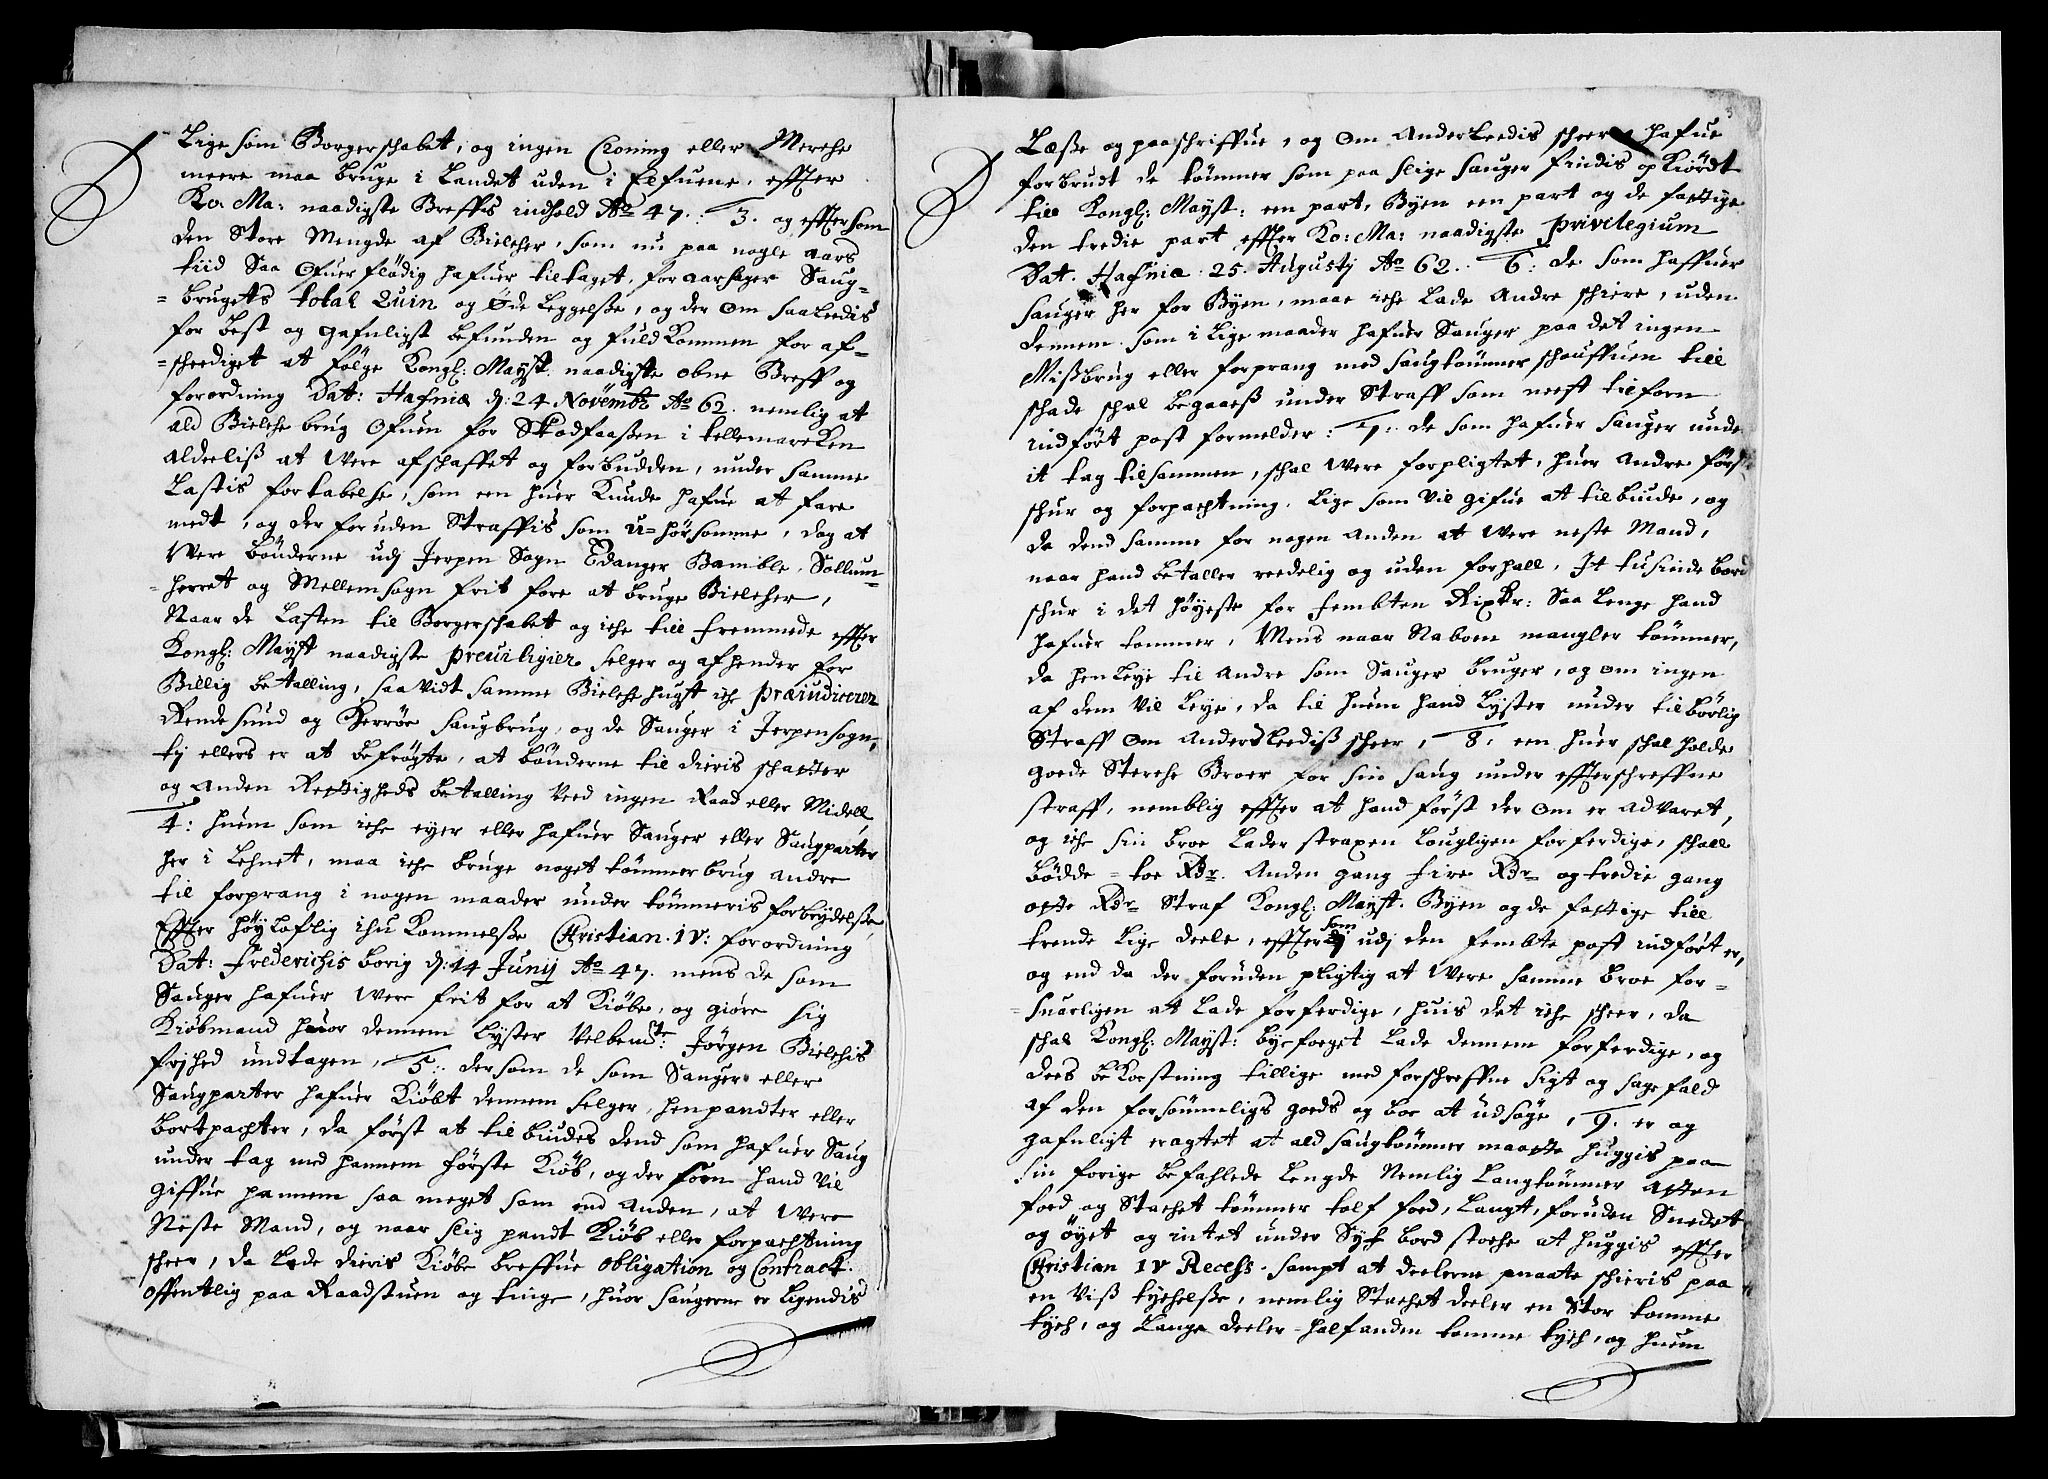 Lige som Borgerschabet, og ingen Croning eller Merche
meere maa bruge i Landet uden i Elfuene, effter
Ko: Ma: naadigste Breffis indhold Ao 47. 3. og efftersom
den Store Mengde af Bielcher, som nu paa nogle aars
tiid Saa Ofuerflødig hafuer tiltaget, foraarsager Saug-
=brugets total Ruin og Øde Leggelsse, og der om saaleedis
for best og gafnligst befunden og fuldkommen for af-
=scheediget at følge Kongl: Mayst. naadigste obne Breff og
forordning Dat: Hafniæ d: 24 Novembr Ao 62. nemlig at
ald Bielche brug Ofuen for Skodfaassen i tellemarcken
Alderliss at Were afschaffet og forbudden, under samme
Lastis fortabelse, som een huer Kunde hafue at fare
medt, og der foruden Straffis som u=hørsomme, dog at
Were bønderne udj Jerpen Sogn Edanger Bamble, Sollum-
=herret og Mellemsogn frit fore at bruge Bielcher,
Naar de Lasten til Borgerschabet og iche till fremmede effter
Kongl: Mayst naadigste preuiligier selger og afhender for
Billig betalling, saa vidt samme Bielchehugst iche præiudicerer
Rende sund og Herrøe saugbrug, og de Sauger i Jerpensogn,
tj ellers er at befrøgte, at bønderne til dieris schatter
og Anden Rettigheds betalling Veed ingen Raad eller Midell
4: huem som iche eyer eller hafuer Sauger eller Saugparter
her i Lehnet, maa iche bruge noget tømmerbrug andre
til forprang i nogen maader under tømmeris forbrydelsse
Effter høyloflig ihu Kommelsse Christian. IV: forordning
Dat: Frederichis borig d: 14 Junij Ao 47. mens de som
Sauger hafuer Were frit for at Kiøbe, og giøre sig
Kiøbmand huor dennem Lyster Velbemt: Jørgen Bielchis
frjhed undtagen, 5: dersom de som Sauger eller
Saugparter hafuer Kiøbt dennem selger, henpandter eller
bortpachter, da først at tilbiudes dend som hafuer Saug
under tag med hannem første Kiøb, og der som hand vil
giffue hannem saa meget som end Anden, at Were
Neste Mand, og naar slig pandt Kiøb eller forpachtning
scheer, da Lade dieris Kiøbe breffue obligation og Contract
offentlig paa Raadstuen og tinge, huor saugerne er Ligendis
3
Læsse og paaschriffue, og Om Anderleedis scheer hafue
forbrudt de tømmer som paa slige sauger findis op Kiørdt
till Kongl: Mayst: een part, Byen een part og de fattige
den tredie part effter Ko: Ma: naadigste privilegium
Dat. Hafniæ. 25. Augustj Ao 62. 6: de som haffuer
sauger her for Byen, maae iche Lade Andre schiere, uden
dennem som i Lige maader hafuer Sauger paa det ingen
Missbrug eller forprang med saugtømmer schouffuen till
schade schal begaaess under Straff som neest tilforn
indført post formelder: 7: de som hafuer sauger unde
it tag tilsammen, schal Were forpligtet, huer Andre først
schur og forpachtning. Lige som vil gifue at tilbiude, og
da dend samme for nogen Anden at Were neste Mand,
naar hand betaller reedelig og uden forhall, It tusinde bord
schur i det høyeste for fembten Rixdr: Saa Lenge hand
hafuer tømmer, Mens naar Naboen mangler tømmer,
da hen Leye til Andre som Sauger bruger, og om ingen
af dem vil Leye, da til huem hand Lyster under tilbørlig
Straff Om Andersleediss scheer, 8: een huer schal holde
goede Sterche Broer for sin saug under effterschreffne
straff, nemblig effter at hand først der Om er Advaret,
og iche sin broe Lader straxen Lougligen forferdige, schall
bødde = toe Rdr. Anden gang fire Rdr og tredie gang
otte Rdr Straf Kongl: Mayst. Byen og de fattige till
trende Lige deele, effter som udj den fembte post indført er,
og end da der foruden pligtig at Were samme broe for-
=suarligen at Lade forferdige, huis det iche scheer, da
schal Kongl: Mayst: byefoeget Lade dennem forferdige, og
dees bekostning tillige med forschreffne sigt og sagefald
af den forsømmeligs goeds og boe at udsøge, 9. er og
gafnligt eragtet at ald saugtømmer maatte huggis paa
sin forige befahlede Lengde Nemlig Langtømmer Atten
foed og Stachet tømmer tolf foed, Langt, foruden Snedet
og øyet og intet under Syf bord stoche at huggis effter
Christian IV Recess. sampt at deelerne maate schieris paa
en viss tyckelsse, nemlig Stachet deeler en Stor tomme
tych, og Lange deeler = half anden tomme tych, og huem